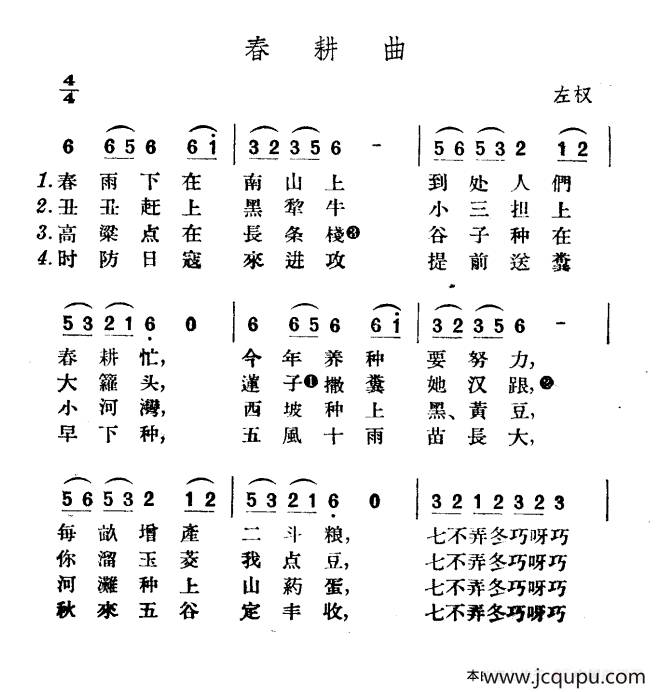 春耕曲
4/4 左权
6 6 5 6 6 i | 3 2 3 5 6 - | 5 6 5 3 2 1 2 |
1. 春雨下在 南山上 到处人們
2. 丑丑赶上 黑犂牛 小三担上
3. 高粱点在 長条棧❸ 谷子种在
4. 时防日寇 來进攻 提前送糞
5 3 2 1 6 0 | 6 6 5 6 6 i | 3 2 3 5 6 - |
春耕忙, 今年养种 要努力,
大籮头, 蓮子❶撒糞 她汉跟,❷
小河灣, 西坡种上 黑、黃豆,
早下种, 五風十雨 苗長大,
5 6 5 3 2 1 2 | 5 3 2 1 6 0 | 3 2 1 2 3 2 3 |
每畝增產 二斗粮, 七不弄冬巧呀巧
你溜玉茭 我点豆, 七不弄冬巧呀巧
河灘种上 山药蛋, 七不弄冬巧呀巧
秋來五谷 定丰收, 七不弄冬巧呀巧
www.jcqupu.com